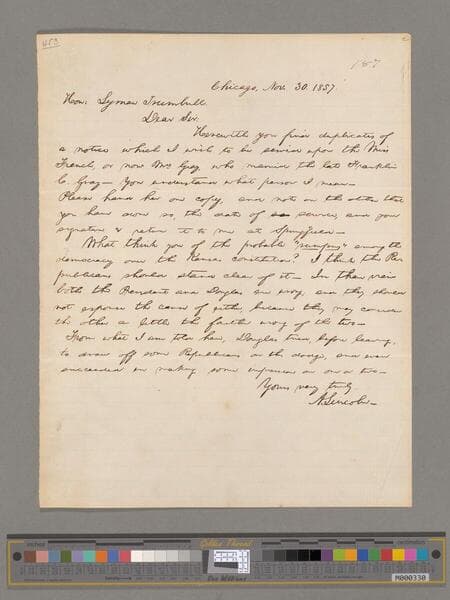 453
187
Chicago, Nov. 30. 1857.
Hon: Lyman Trumbull.
Dear Sir:
Herewith you find duplicates of
a notice which I wish to be served upon the Miss
French, or now Mrs Gray, who married the late Franklin
C. Gray— You understand what person I mean—
Please hand her one copy, and note on the other that
you have done so, the date of service, and your
signature & return it to me at Springfield—
What think you of the probable "rumpus" among the
democracy over the Kansas constitution? I think the Re-
publicans should stand clear of it— In their view
both the President and Douglas are wrong, and they should
not espouse the cause of either, because they may consider
the other a little the farther wrong of the two—
From what I am told here, Douglas tried, before leaving,
to draw off some Republicans on the dodge, and even
succeeded in making some impression on one or two—
Yours very truly
A. Lincoln—
inches
Golden Thread
centimeters
M000330